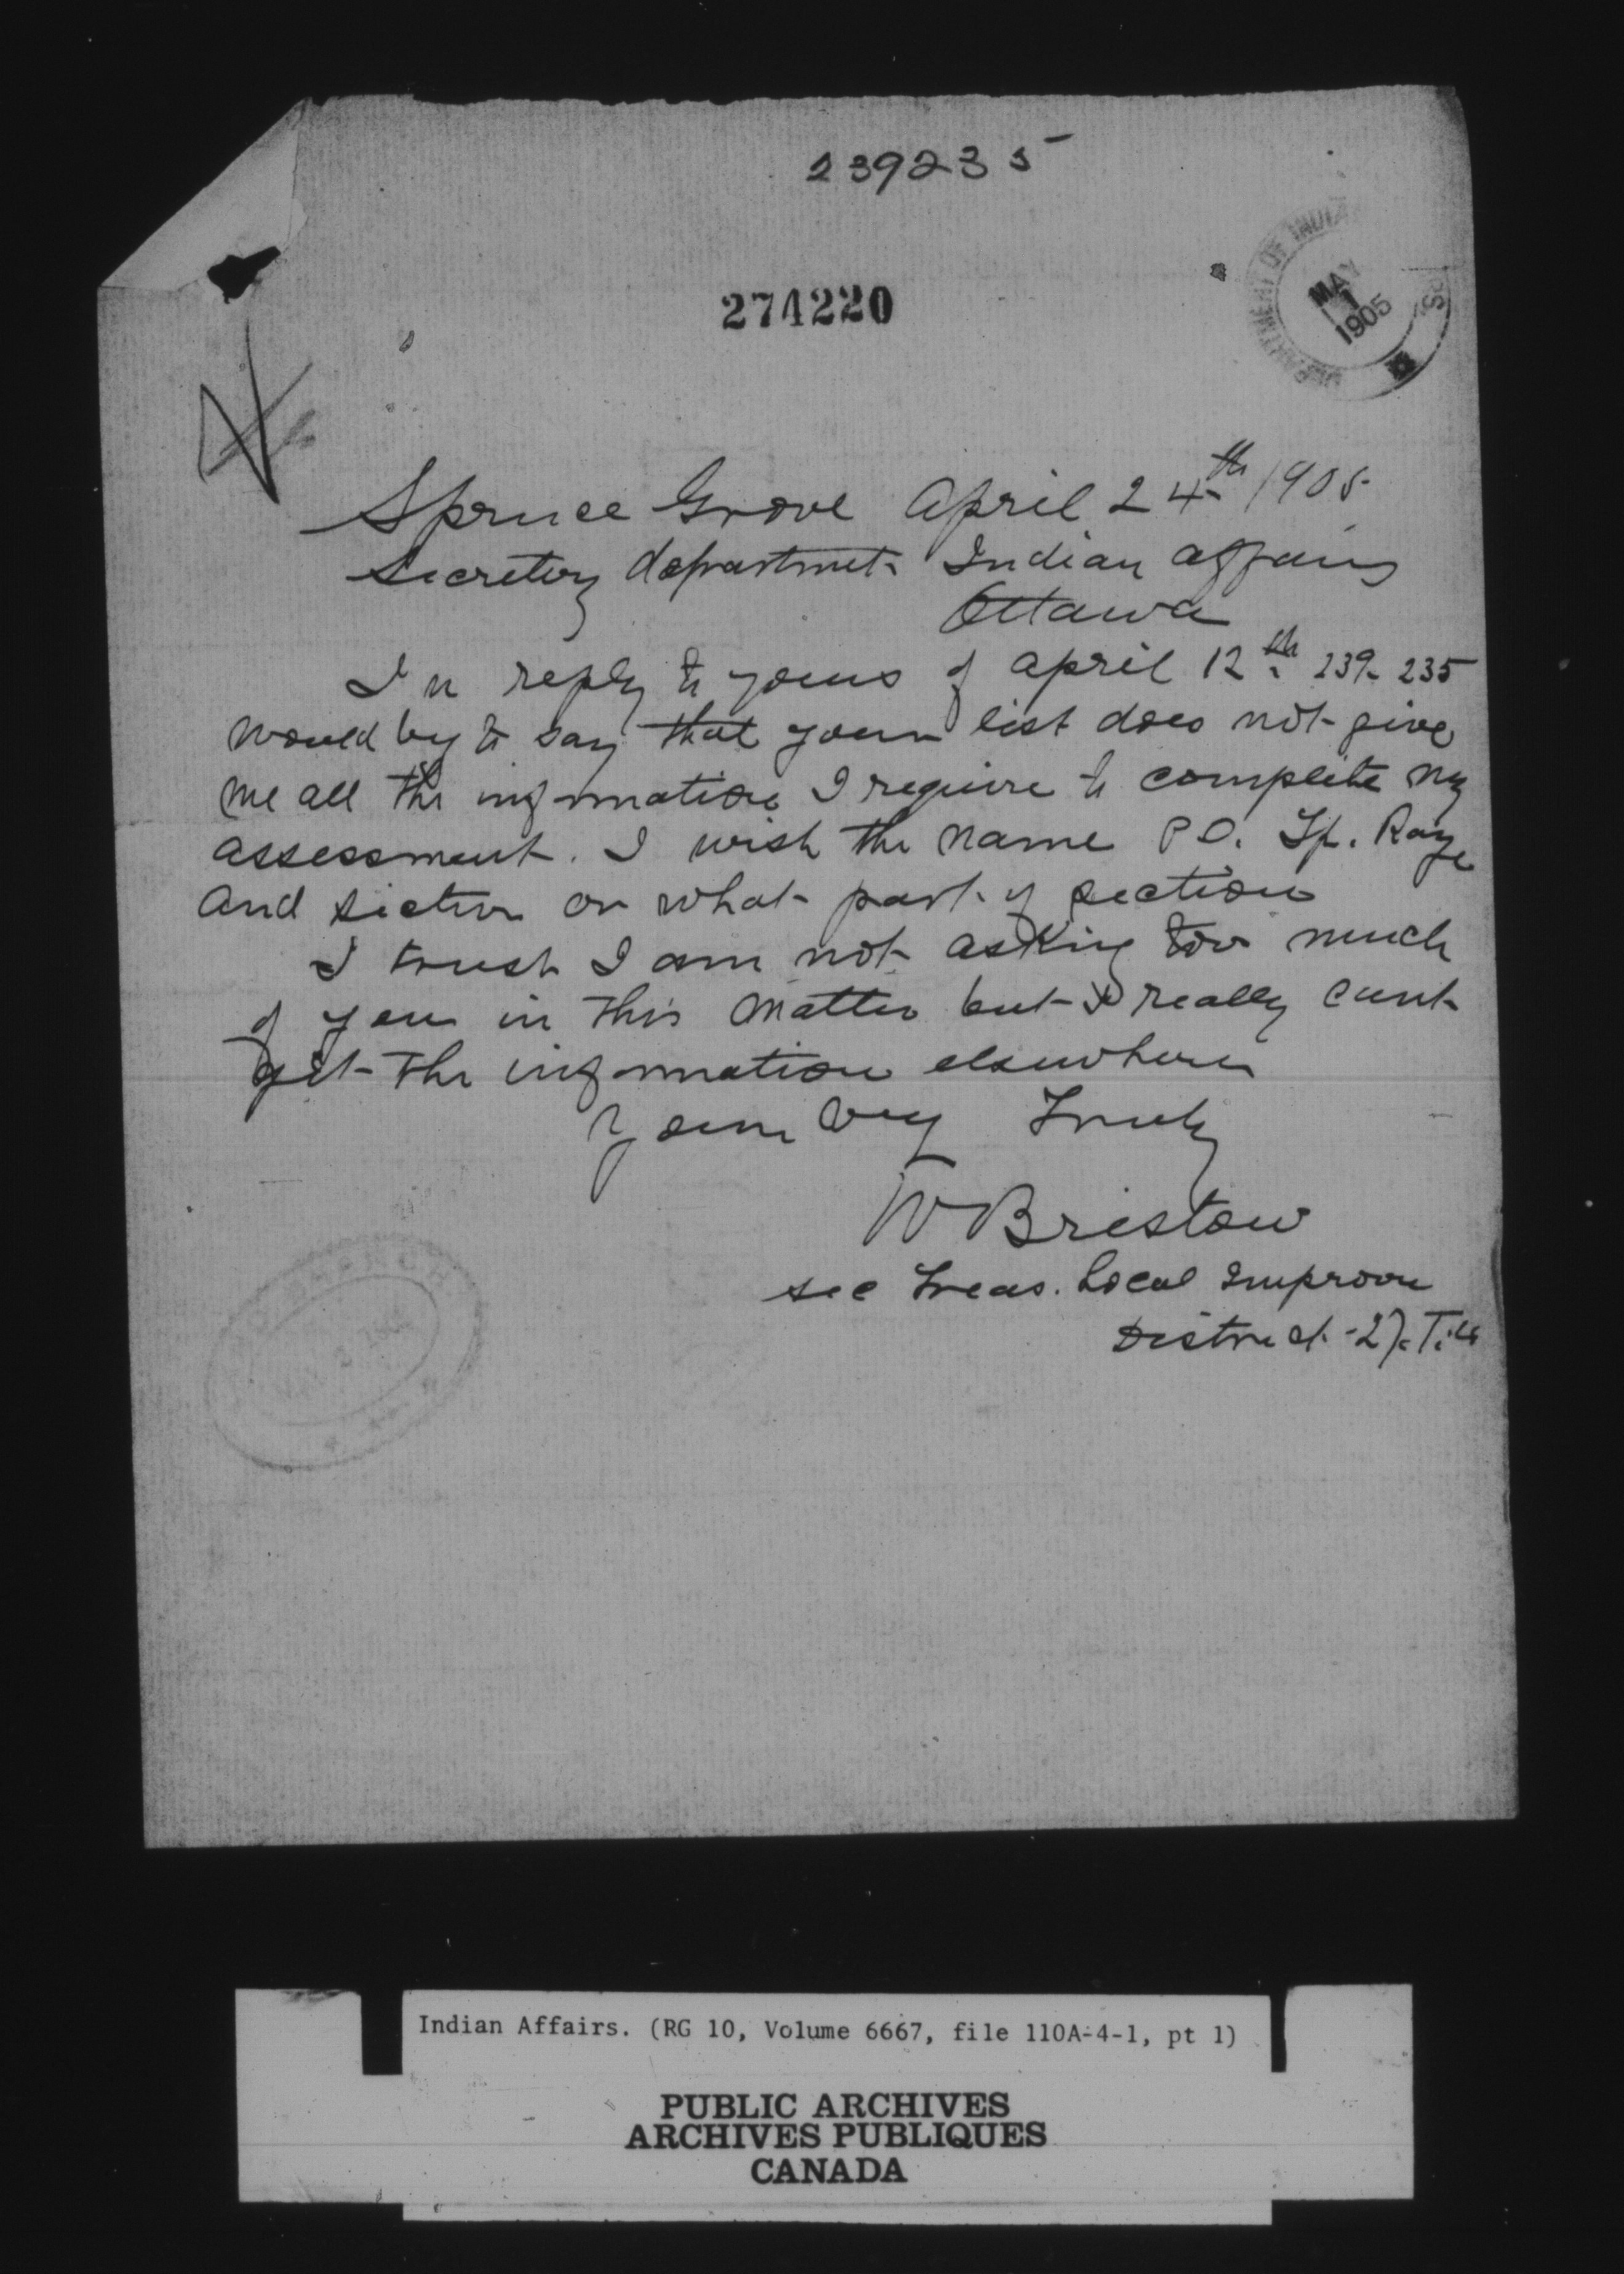 239235
274220
DEPARTMENT OF INDIA
MAY
1
1905
Spruce Grove April 24th 1905
Secretary department Indian Affairs
Ottawa
In reply to yours of April 12th 239-235
would beg to say that your list does not give
me all the information I require to complete my
assessment. I wish the name P.O. Tp. Range
and section or what part of section
I trust I am not asking too much
of you in this matter but I really cant
get the information elsewhere
Yours very Truly
W Bristow
Sec Treas. Local Improve
District 27.
BRANCH
Indian Affairs. (RG 10, Volume 6667, file 110A-4-1, pt 1)
PUBLIC ARCHIVES
ARCHIVES PUBLIQUES
CANADA